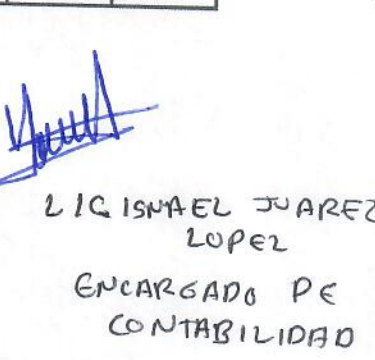 LIC ISMAEL JUAREZ
LOPEZ
ENCARGADO DE
CONTABILIDAD